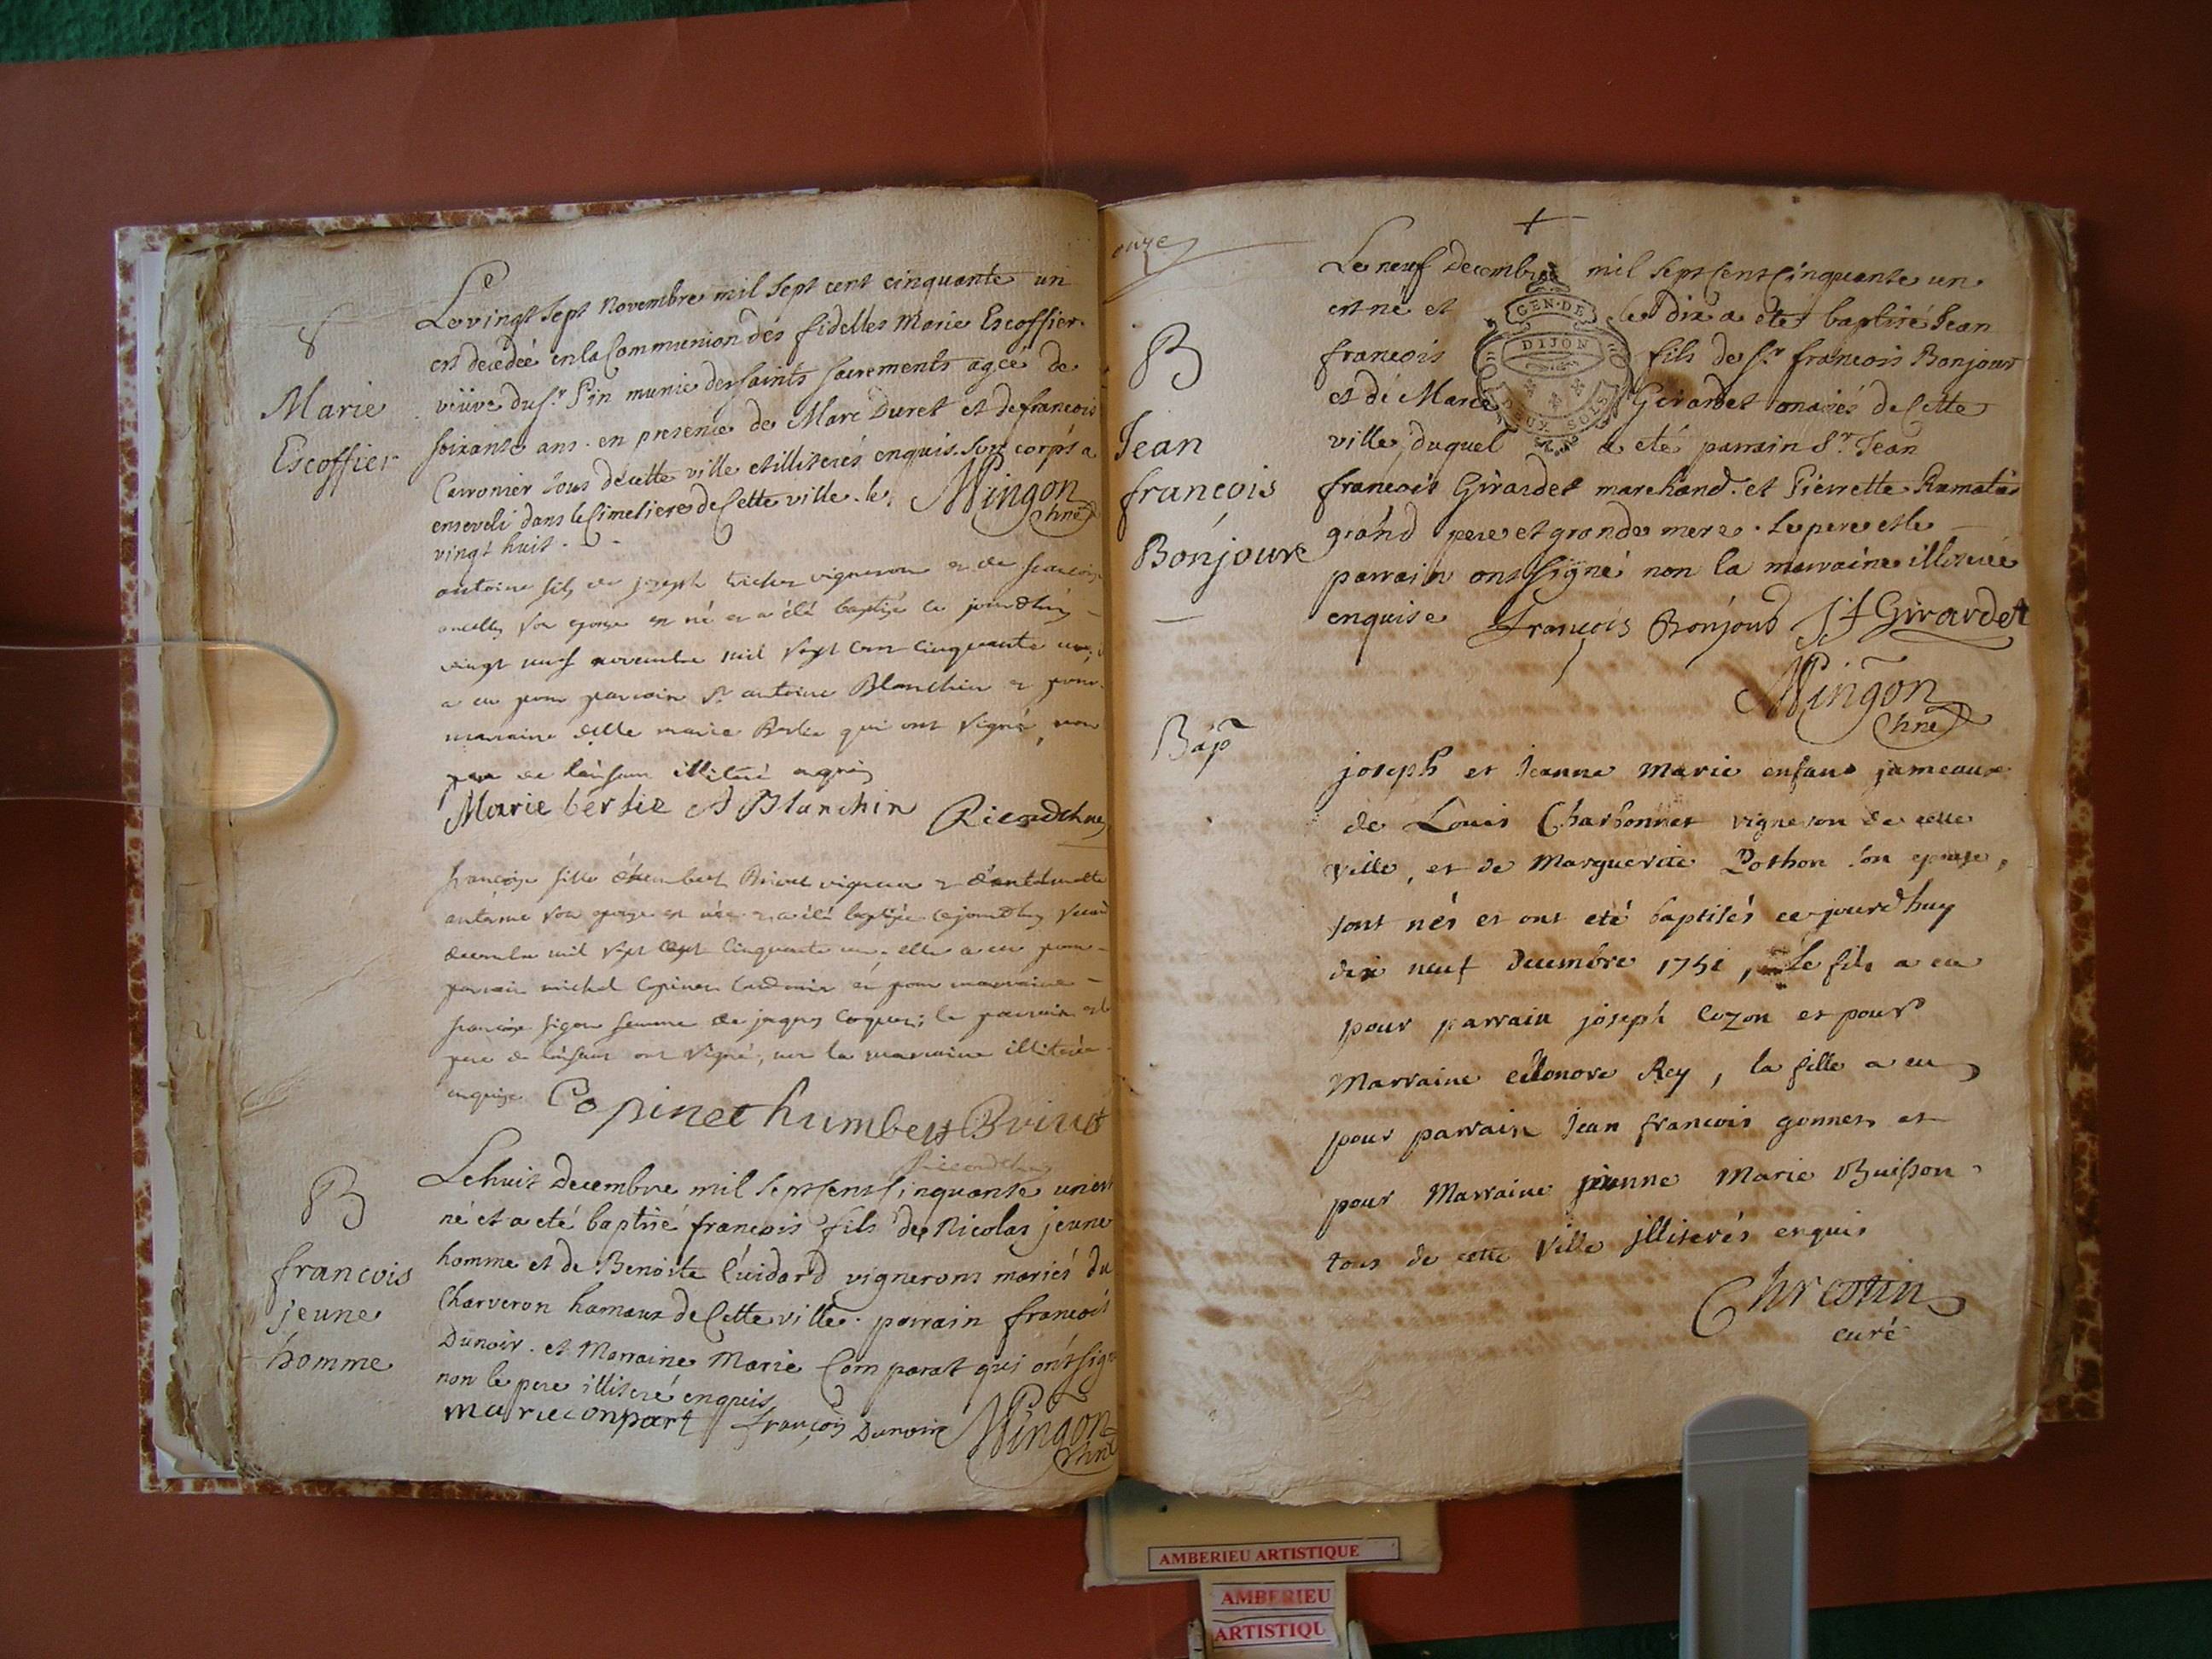 Le vingt sept Novembre mil sept cent cinquante un
est decedeé en la Communion des fidelles Marie Escoffier
veüve du sr. Pin munie des saints sacrements ageé de
soixante ans. en presence de Marc Duret et de francois
tous de cette ville et illiterés enquis. son corps a
enseveli dans le Cimetiere de Cette ville. le
vingt huit.
Mingon
Marie
Escoffier
antoine fils de joseph vigneron et de
son epouse est né et a été baptisé ce jourdhuy
vingt neuf novembre mil sept cent cinquante un,
a eu pour parrain Sr antoine Blanchin et pour
marraine delle marie Berlie qui ont signé, non
pere de l'enfant illitéré enquis
Marie berlie A Blanchin
françoise fille d'humbert Brivet vigneron et d'anthelmette
son epouse est née et a été baptisée ce jourdhuy second
decembre mil sept cent cinquante un. elle a eu pour
parrain michel Copinet et pour marraine
françoise femme de jaques ; le parrain et le
pere de l'enfant ont signé, non la marraine illiterée
enquise Copinet humbert Brivet
B
francois
jeune
homme
Le huit decembre mil sept Cent Cinquante un est
né et a eté baptisé francois fils de Nicolas jeune
homme et de Benoite Cuidard vignerons mariés du
Charveron hamaux de Cette ville. parrain francois
Dunoir. et Marraine Marie Comparat qui ont signé
non le pere illiteré enquis
marie conpart françois Dunoir Mingon
onze
Le neuf Decembre mil sept Cent Cinquante un
est né et le dix a eté baptisé Jean
francois fils de sr. francois Bonjour
et de Marie Girardet mariés de Cette
ville duquel a eté parrain Sr. Jean
francois Girardet marchand. et Pierrette Ramatias
grand pere et grande mere. Le pere et le
parrain ont signé non la marraine illiterée
enquise François Bonjour J f Girardet
Mingon
GEN. DE
DIJON
DEUX SOLS
B
Jean
francois
Bonjour
Bap
joseph et Jeanne Marie enfans jameaux
de Louis Charbonnet vigneron de cette
ville, et de Marguerite Pothon son epouse,
sont nés et ont eté baptisés ce jourdhuy
dix neuf decembre 1751, Le fils a eu
pour parrain joseph Cozon et pour
Marraine eleonore Rey, la fille a eu
pour parrain Jean francois gonnet et
pour Marraine jeanne Marie Buisson
tous de cette Ville illiterés enquis
Chrestin
curé
AMBERIEU ARTISTIQUE
AMBERIEU
ARTISTIQU